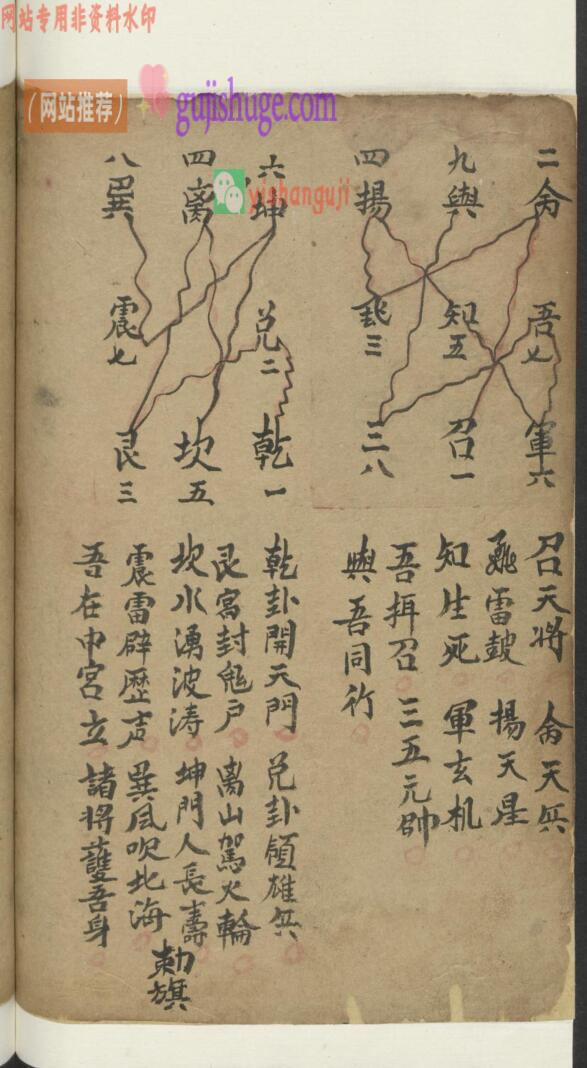 网站专用非资料水印
（网站推荐）
gujishuge.com
yishanguji
二 俞
九 與
四 揚
吾 七
知 五
三
軍 六
召 一
三 八
召天將 俞天兵
雷鼓 揚天星
知生死 軍玄机
吾揖召 三五元帥
與吾同行
六 坤
四 离
八 巽
兑 二
震 七
乾 一
坎 五
艮 三
乾卦開天門 兑卦領雄兵
艮宮封鬼户 离山駕火輪
坎水湧波涛 坤門人長壽
震雷辟歷声 巽風吹北海
吾在中宮立 諸將護吾身
勅旗